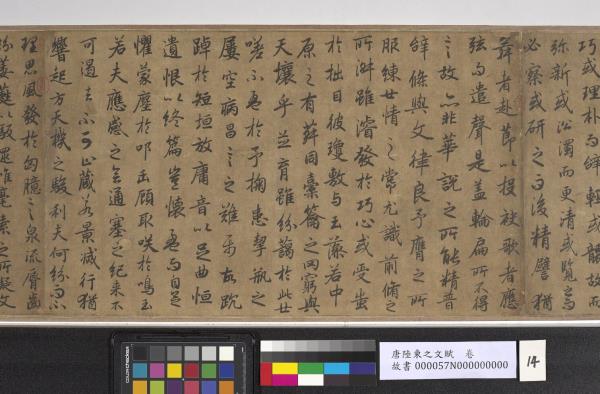 巧或理朴而辞輕或襲故而
弥新或沿濁而更清或覽之而
必察或研之而後精譬猶
舞者赴節以投袂歌者應
弦而遣聲是盖輪扁所不得
言故亦非華説之所能精普
辞條與文律良予膺之所
服練世情之常尤識前脩之
所淋雖濬發於巧心或受蚩
於拙目彼瓊敷与玉藻若中
原之有菽同橐籥之罔窮與
天壤乎並育雖紛藹於此世
嗟不盈於予掬患挈瓶之
屢空病昌言之難屬故踸
踔於短垣放庸音以足曲恒
遺恨以終篇豈懷盈而自足
懼蒙塵於叩缶顧取咲於鳴玉
若夫應感之會通塞之紀来不
可遏去不可止藏若景滅行猶
響起方天機之駿利夫何紛而不
理思風發於匈臆言泉流脣齒
紛葳蕤以馺遝唯毫素之所擬文
唐陸柬之文賦　卷
故書 000057N000000000
14